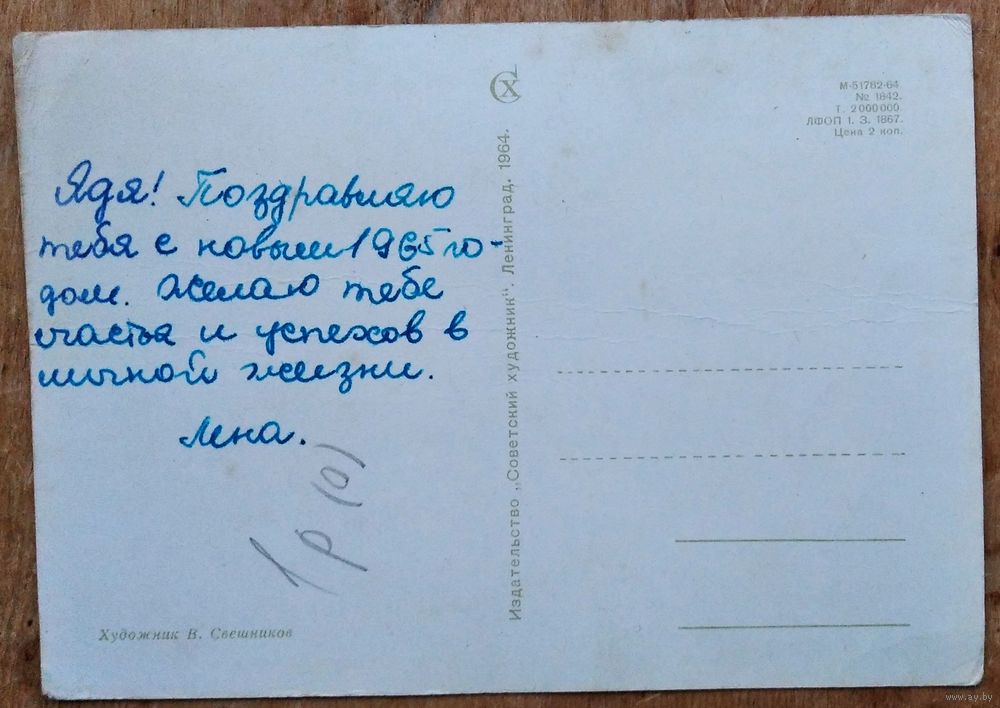 Ядя! Поздравляю
тебя с новым 1965 го-
дом. Желаю тебе
счастья и успехов в
личной жизни.
Лена.
1 р (0)
Художник В. Свешников
Издательство „Советский художник". Ленинград. 1964.
СХ
М-51782-64
№ 1842.
Т. 2000000
ЛФОП 1. З. 1867.
Цена 2 коп.
www.ay.by